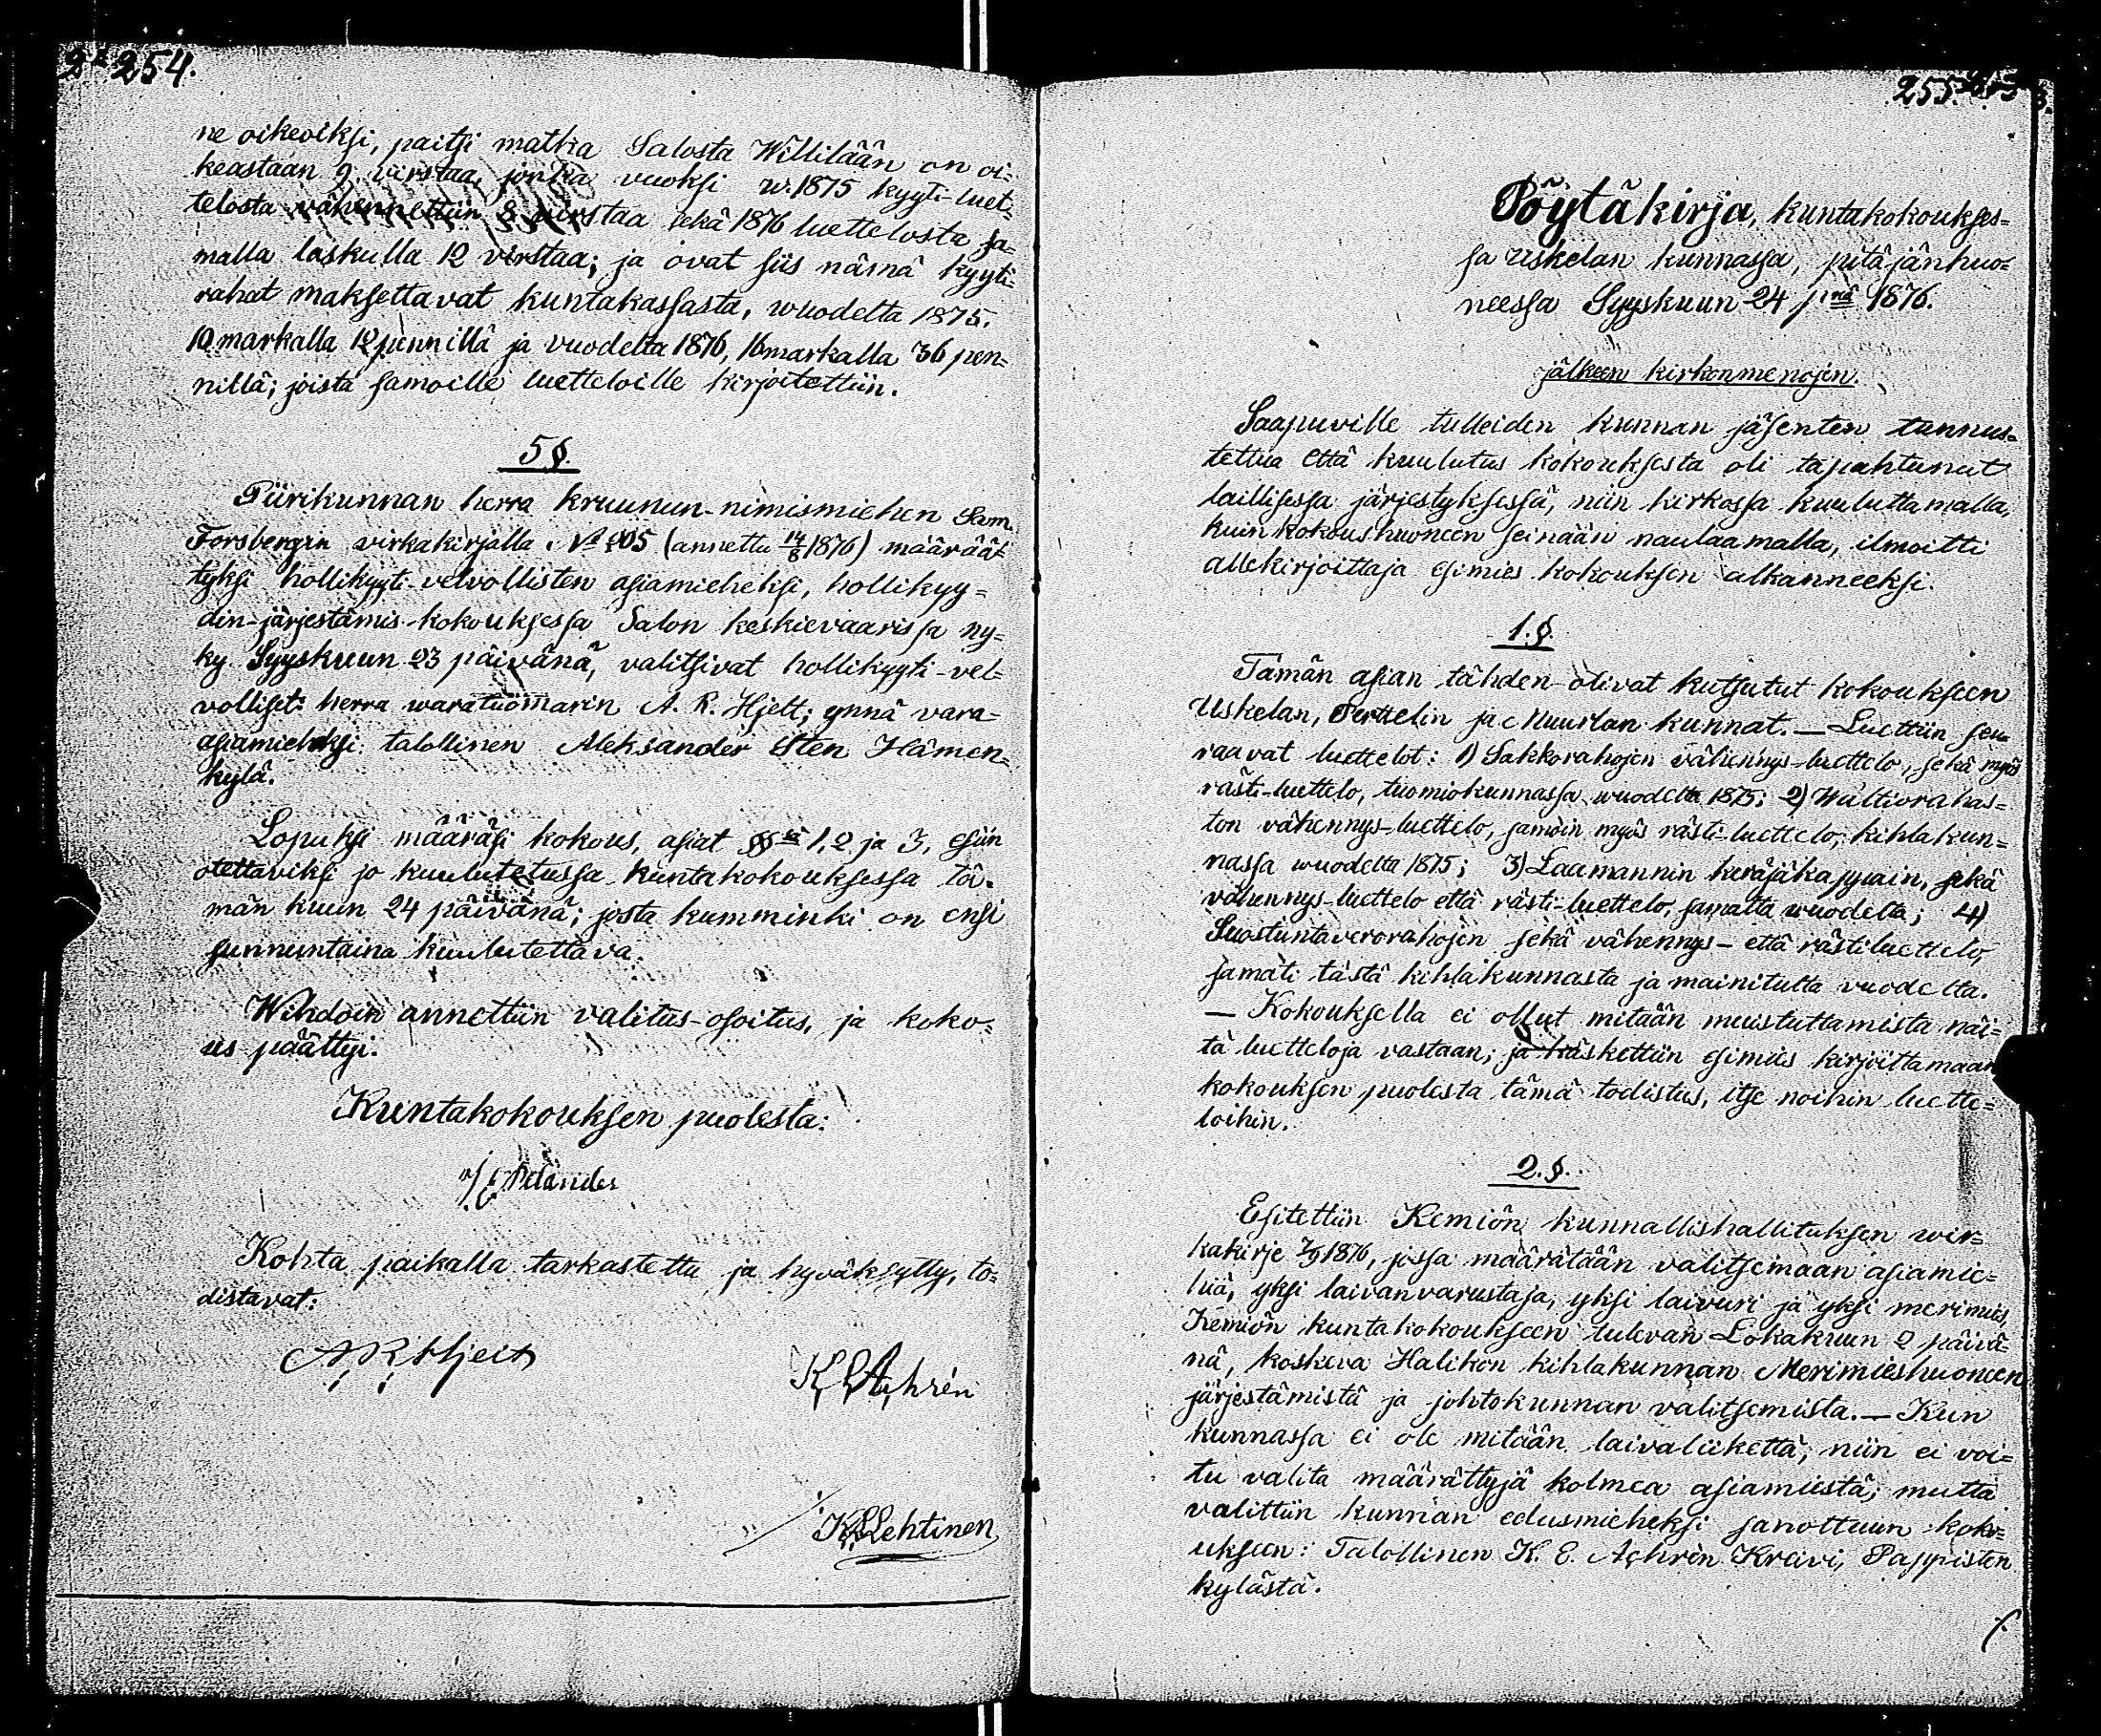 254.
ne oikeoiksi, paitsi matka Salosta Willilään on oi=
keastaan 9 virstaa, jonka vuoksi w. 1875 kyyti-luet=
telosta vähennettiin 8 virstaa sekä 1876 luettelosta sa=
malla laskulla 12 virstaa; ja ovat siis nämä kyyti=
rahat maksettavat kuntakassasta, wuodelta 1875,
10 markalla 12 pennillä ja vuodelta 1876, 16 markalla 36 pen=
nillä; joista samoille luetteloille kirjoitettiin.
5 §.
Piirikunnan herra kruunun-nimismiehen Sam.
Forsbergin virkakirjalla (annettu 14/8 1876) määrät=
tyksi hollikyyti-velvollisten asiamieheksi, hollikyy=
din-järjestämis-kokouksessa Salon keskievaarissa ny=
ky Syyskuun 23 päivänä, valitsivat hollikyyti-vel=
volliset: herra waratuomarin A. R. Hjelt; ynnä vara=
asiamieheksi talollinen Aleksander Sten Hämen=
kylä.
Lopuksi määräsi kokous, asiat §§ 1, 2 ja 3, esiin
otettaviksi jo kuulutetussa kuntakokouksessa tä=
män kuun 24 päivänä; josta kumminki on ensi
sunnuntaina kuulutettava.
Wihdoin annettiin valitus-osoitus, ja koko=
us päättyi.
Kuntakokouksen puolesta:
Kohta paikalla tarkastettu ja hyväksytty, to=
distavat:
A R Hjelt
K E Achrén
K Lehtinen
255.
Pöytäkirja, kuntakokoukses=
sa Uskelan kunnassa, pitäjänhuo=
neessa Syyskuun 24 pnä 1876.
jälkeen kirkonmenojen.
Saapuville tulleiden kunnan jäsenten tunnus=
tettua että kuulutus kokouksesta oli tapahtunut
laillisessa järjestyksessä, niin kirkossa kuuluttamalla,
kuin kokoushuoneen seinään naulaamalla, ilmoitti
allekirjoittaja esimies kokouksen alkanneeksi.
1. §.
Tämän asian tähden olivat kutsutut kokoukseen
Uskelan, Perttelin ja Muurlan kunnat. — Luettiin seu
raavat luettelot: 1) Sakkorahojen vähennys-luettelo, sekä myös
rästi-luettelo, tuomiokunnassa wuodelta 1875; 2) Waltiorahas=
ton vähennys-luettelo, samoin myös rästi-luettelo, kihlakun=
nassa wuodelta 1875; 3) Laamannin keräjäkappain, sekä
vähennys-luettelo että rästi-luettelo, samalta wuodelta; 4)
Suostuntaverorahojen sekä vähennys- että rästiluettelo,
samati tästä kihlakunnasta ja mainitulta vuodelta.
— Kokouksella ei ollut mitään muistuttamista näi=
tä luetteloja vastaan; ja käskettiin esimies kirjoittamaan
kokouksen puolesta tämä todistus, itse noihin luette=
loihin.
2. §.
Esitettiin Kemiön kunnallishallituksen wir=
kakirje 7/9 1876, jossa määrätään valitsemaan asiamie=
hiä, yksi laivanvarustaja, yksi laivuri ja yksi merimies,
Kemiön kuntakokoukseen tulevan Lokakuun 2 päivä=
nä, koskeva Halikon kihlakunnan Merimieshuoneen
järjestämistä ja johtokunnan valitsemista. — Kun
kunnassa ei ole mitään laivaliikettä, niin ei voi=
tu valita määrättyjä kolmea asiamiestä; mutta
valittiin kunnan edusmieheksi sanottuun koko=
ukseen: Talollinen K. E. Achrén Kreivi, Pappisten
kylästä.